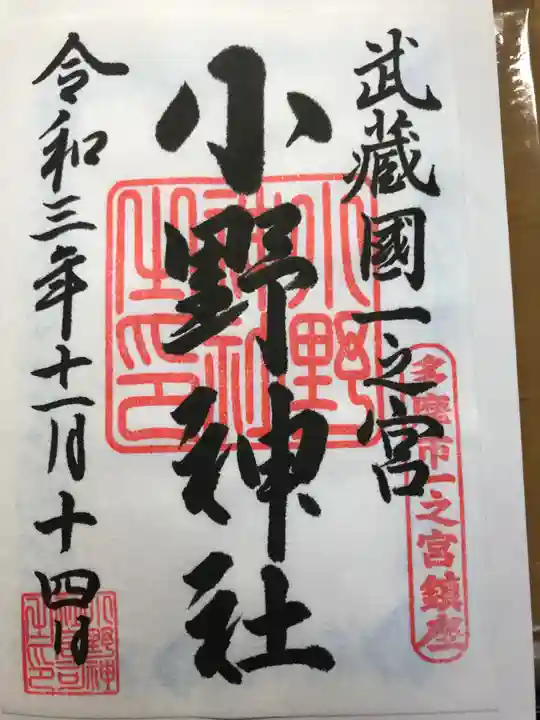 武蔵國一之宮
多摩市一之宮鎮座
小野神社
小野神社之印
令和三年十一月十四日